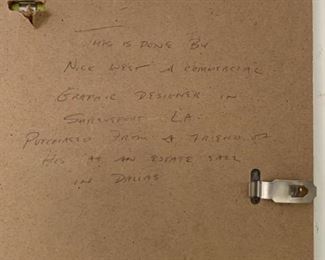 THIS IS DONE BY
NICK WEST A COMMERCIAL
GRAPHIC DESIGNER IN
SHREVEPORT LA.
PURCHASED FROM A FRIEND OF
HIS AT AN ESTATE SALE
IN DALLAS